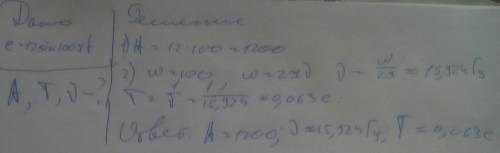 Дано
Решение
e=12sin100πt
1) A = 12·100=1200
A, T, ν-?
2) w=100 w=2πν ν= w/2π = 15,924 Гц
T = 1/ν = 1/15,924 = 0,063 с.
Ответ: A=1200; ν=15,924 Гц, T=0,063 с